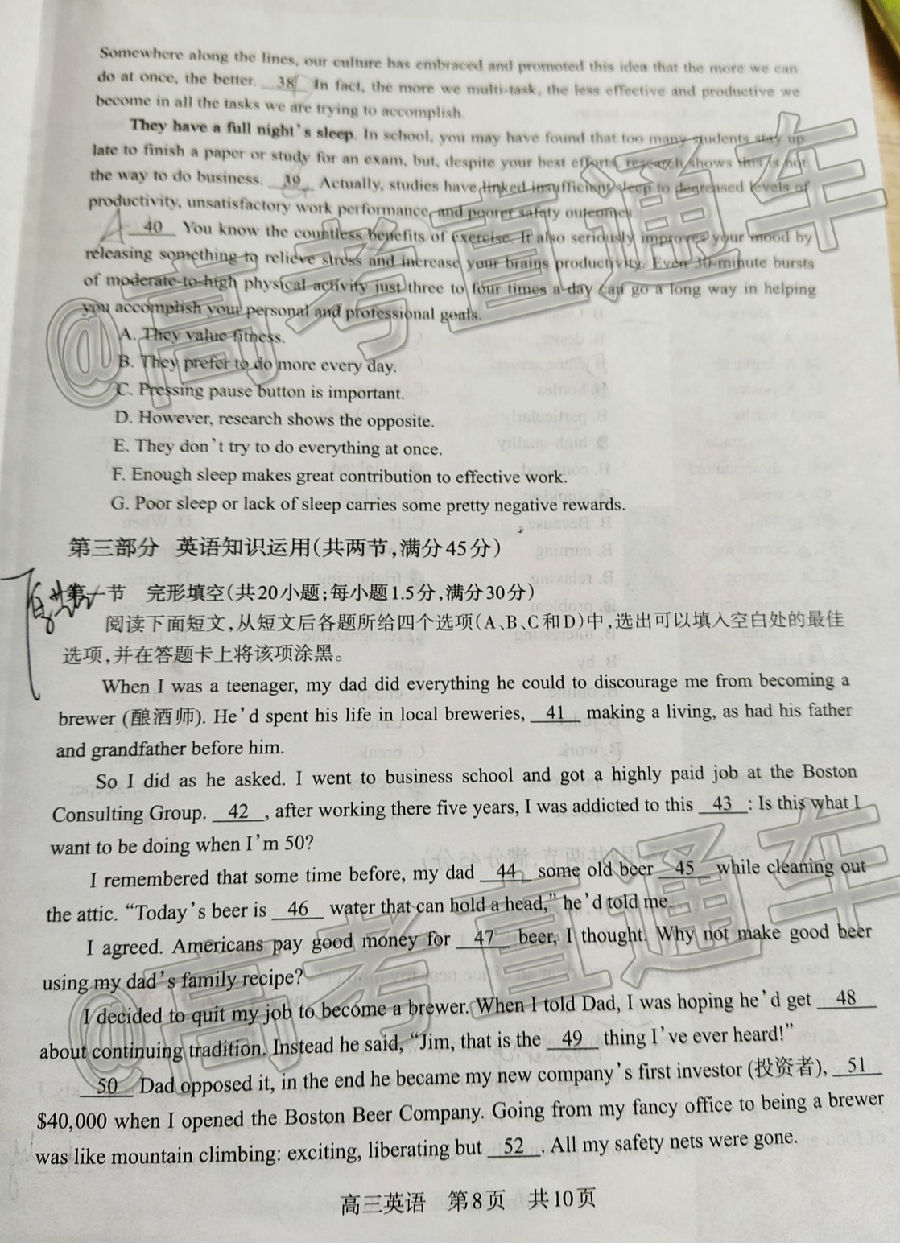 Somewhere along the lines, our culture has embraced and promoted this idea that the more we can
do at once, the better. 38 In fact, the more we multi-task, the less effective and productive we
become in all the tasks we are trying to accomplish.
They have a full night's sleep. In school, you may have found that too many students stay up
late to finish a paper or study for an exam, but, despite your best efforts, research shows this is not
the way to do business. 39 Actually, studies have linked insufficient sleep to decreased levels of
productivity, unsatisfactory work performance, and poorer safety outcomes.
A 40 You know the countless benefits of exercise. It also seriously improves your mood by
releasing something to relieve stress and increase your brains productivity. Even 30-minute bursts
of moderate-to-high physical activity just three to four times a day can go a long way in helping
you accomplish your personal and professional goals.
A. They value fitness.
B. They prefer to do more every day.
C. Pressing pause button is important.
D. However, research shows the opposite.
E. They don't try to do everything at once.
F. Enough sleep makes great contribution to effective work.
G. Poor sleep or lack of sleep carries some pretty negative rewards.
第三部分 英语知识运用(共两节,满分45分)
第一节 完形填空(共20小题;每小题1.5分,满分30分)
阅读下面短文,从短文后各题所给四个选项(A、B、C和D)中,选出可以填入空白处的最佳
选项,并在答题卡上将该项涂黑。
When I was a teenager, my dad did everything he could to discourage me from becoming a
brewer (酿酒师). He'd spent his life in local breweries, 41 making a living, as had his father
and grandfather before him.
So I did as he asked. I went to business school and got a highly paid job at the Boston
Consulting Group. 42 , after working there five years, I was addicted to this 43 : Is this what I
want to be doing when I'm 50?
I remembered that some time before, my dad 44 some old beer 45 while cleaning out
the attic. "Today's beer is 46 water that can hold a head," he'd told me.
I agreed. Americans pay good money for 47 beer, I thought. Why not make good beer
using my dad's family recipe?
I decided to quit my job to become a brewer. When I told Dad, I was hoping he'd get 48
about continuing tradition. Instead he said, "Jim, that is the 49 thing I've ever heard!"
50 Dad opposed it, in the end he became my new company's first investor (投资者), 51
$40,000 when I opened the Boston Beer Company. Going from my fancy office to being a brewer
was like mountain climbing: exciting, liberating but 52 . All my safety nets were gone.
高三英语 第8页 共10页
@高考直通车
@高考直通车